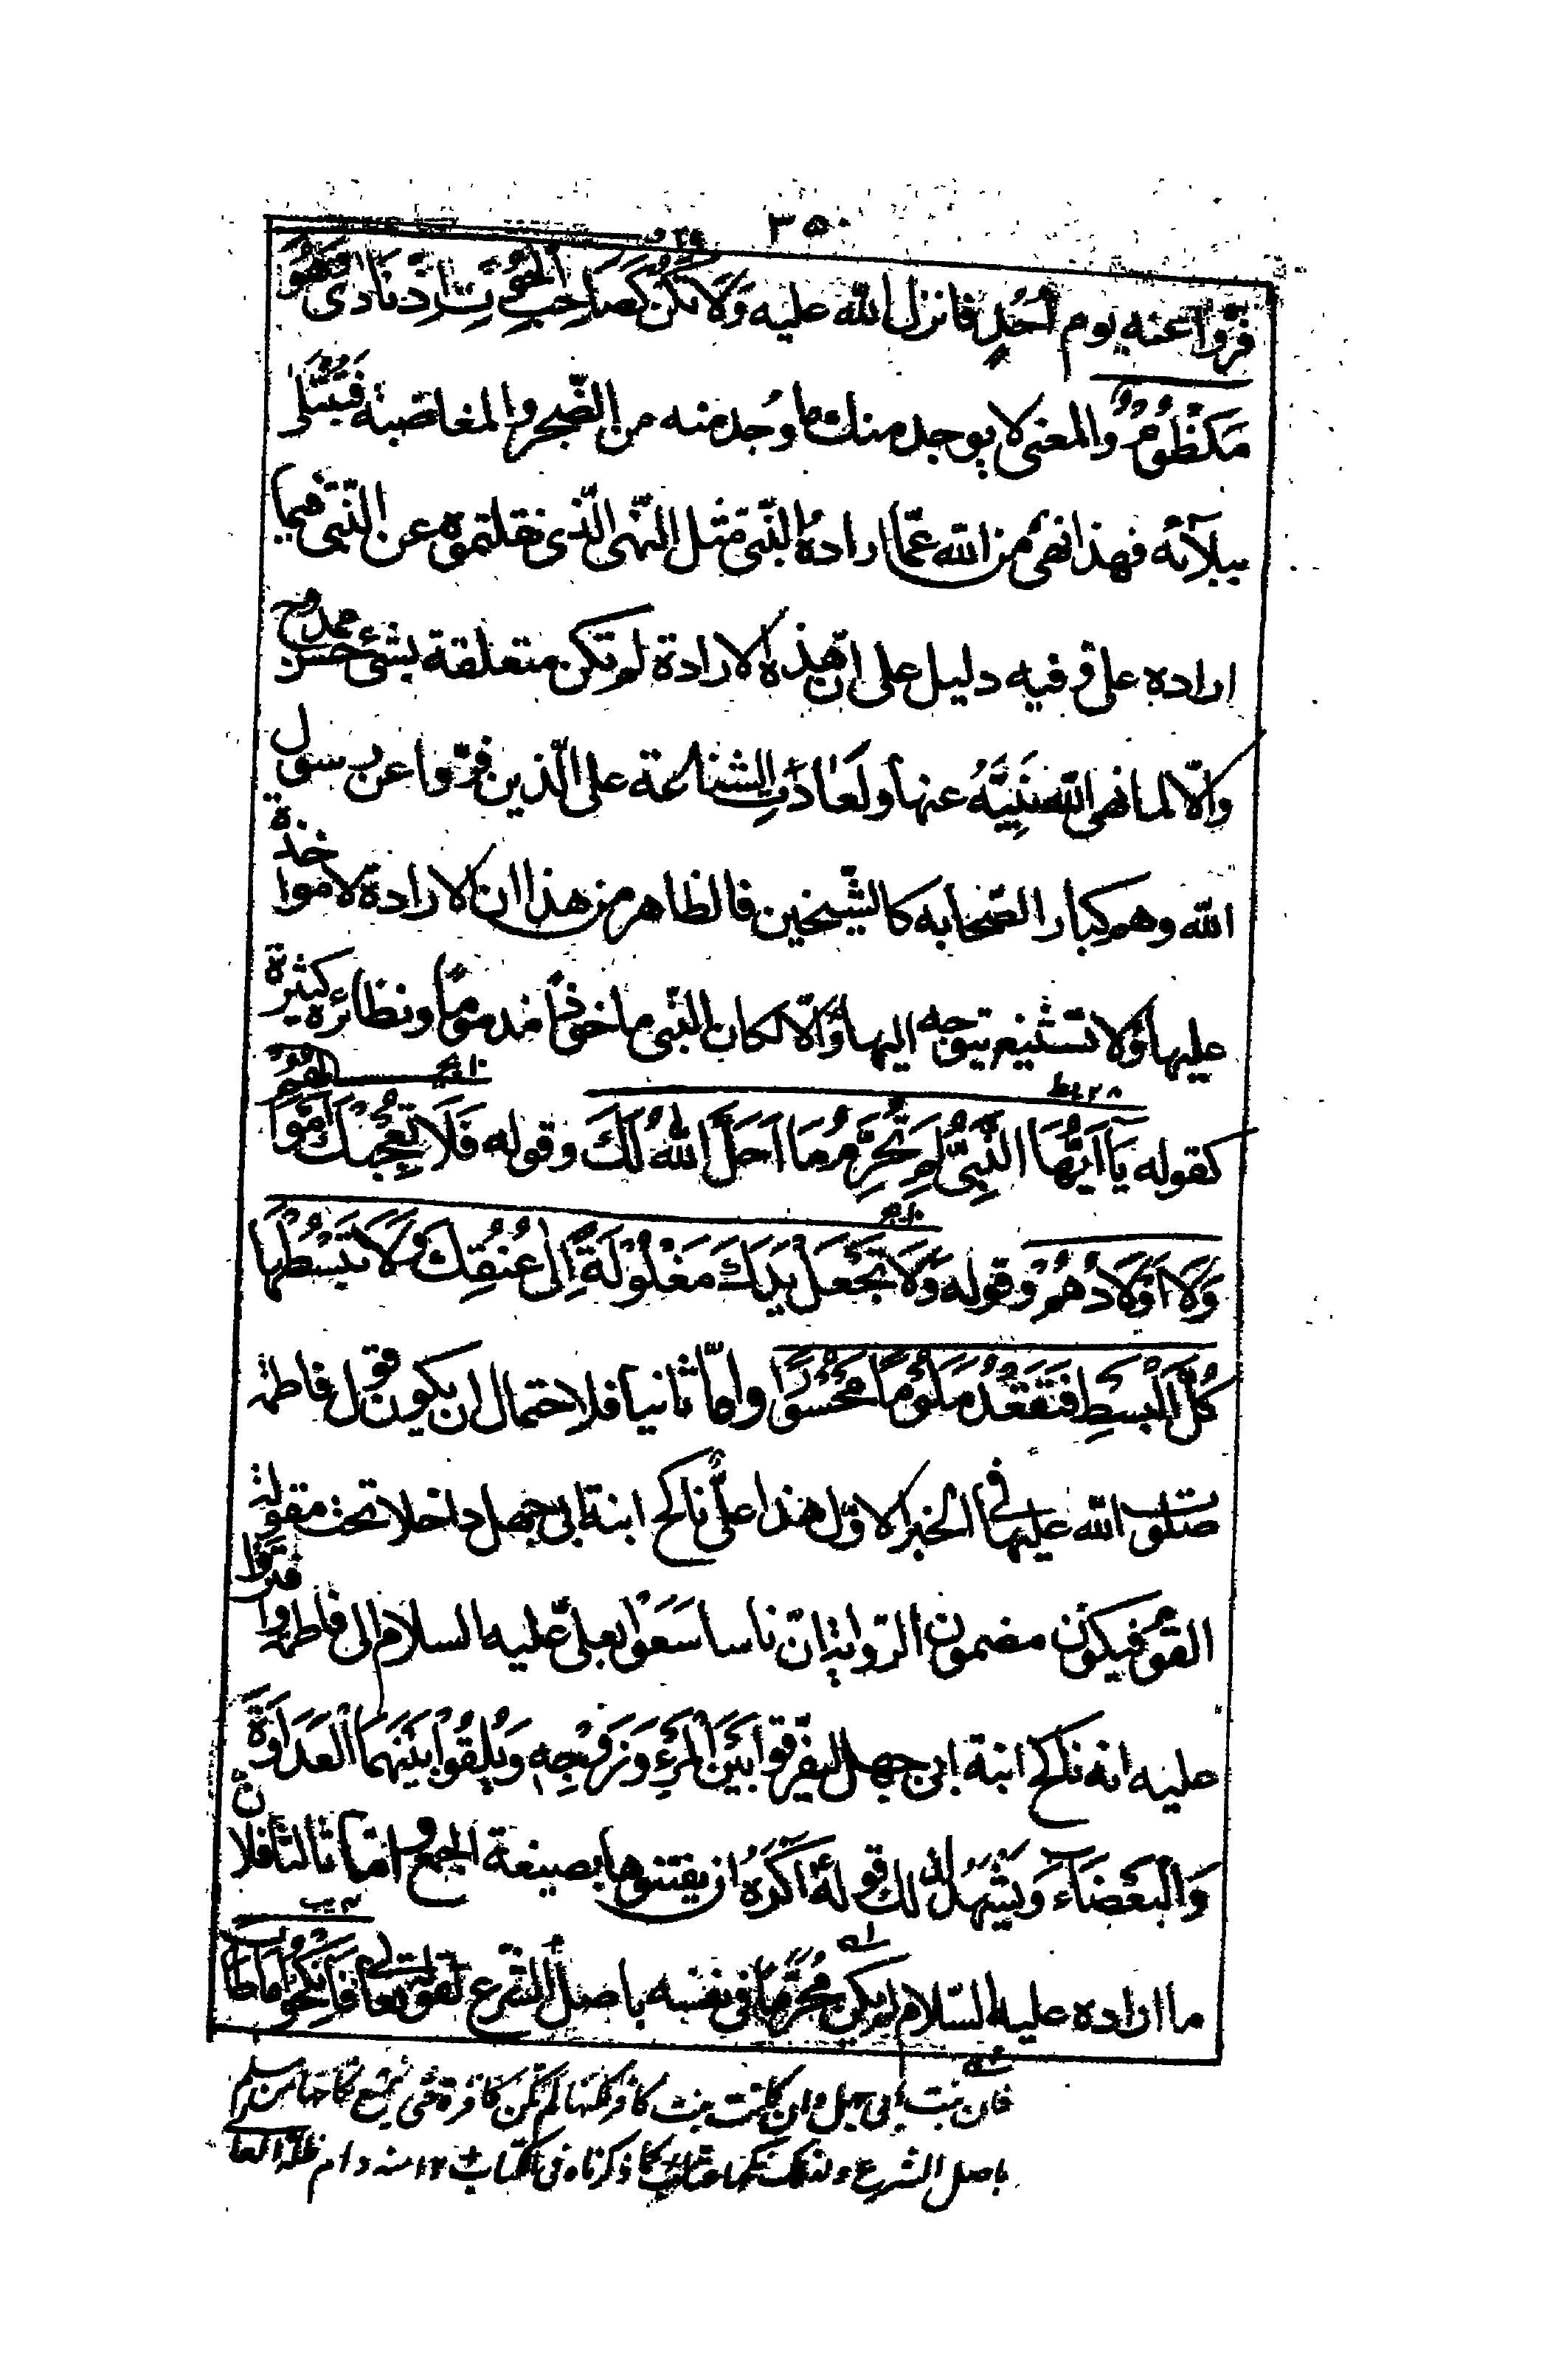 ٣٥٠
فرّوا عنه يوم أُحُدٍ فانزل الله عليه وَلَا تَكُنْ كَصَاحِبِ الْحُوْتِ اِذْ نَادٰى وَهُوَ
مَكْظُوْمٌ والمعنى لا يوجد منك ما وُجد منه من الضّجر والمغاضبة فَتُبْتَلٰى
ببلآئه فهذا نهىٌ من الله عمّا ارادهُ النّبى مثل النّهى الّذى نقلتموه عن النّبى فيما
اراده علىّ وفيه دليل على انّ هذه الارادة لم تكن متعلقة بشئ حسن ممدوح
والّا لما نهى الله نَبِيَّهُ عنها ولَعَادَتِ الشناعة على الّذين فرّوا عن رسول
الله وهم كبار الصّحابه كالشّيخين فالظاهر من هذا ان الارادة لا مواخذة
عليها ولا تشنيع يتوجه اليها والّا لكان النّبى ماخوذًا مذمومًا ونظائره كثيرة
كقوله يَآ اَيُّهَا النَّبِىُّ لِمَ تُحَرِّمُ مَا اَحَلَّ اللهُ لَكَ وقوله فَلَا تُعْجِبْكَ اَمْوَالُهُمْ
وَلَا اَوْلَادُهُمْ وقوله وَلَا تَجْعَلْ يَدَكَ مَغْلُوْلَةً اِلٰى عُنُقِكَ وَلَا تَبْسُطْهَا
كُلَّ الْبَسْطِ فَتَقْعُدَ مَلُوْمًا مَحْسُوْرًا وامّا ثانيا فلاحتمال ان يكون قول فاطمة
صلوت الله عليها فى الخبر الاوّل هذا علىّ ناكح ابنة ابى جهل داخلا تحت مقولة
القوم فيكون مضمون الرّواية انّ ناسا سَعَوْا بعلىّ عليه السلام الى فاطمة وافتروا
عليه انه ناكح ابنة ابى جهل ليفرّقوا بَيْنَ الْمَرْءِ وَزَوْجِهٖ وَيُلْقُوْا بَيْنَهُمَا الْعَدَاوَةَ
وَالْبَغْضَاءَ وَيَشْهَدُ لذلك قولهُ اَكْرَهُ ان يفتنوها بصيغة الجمع وامّا ثالثًا فلانّ
ما اراده عليه السّلام لم يكن مُحَرَّمًا فى نفسه باصل الشّرع لقوله تعالى فَانْكِحُوْا مَا طَابَ
فان بنت ابى جهل وان كانت بنت كافر لكنها لم تكن كافرة حتى يمتنع نكاحها من مسلم
باصل الشرع كما ذكرناه فى الكتاب ١٢ منه دام ظله العا